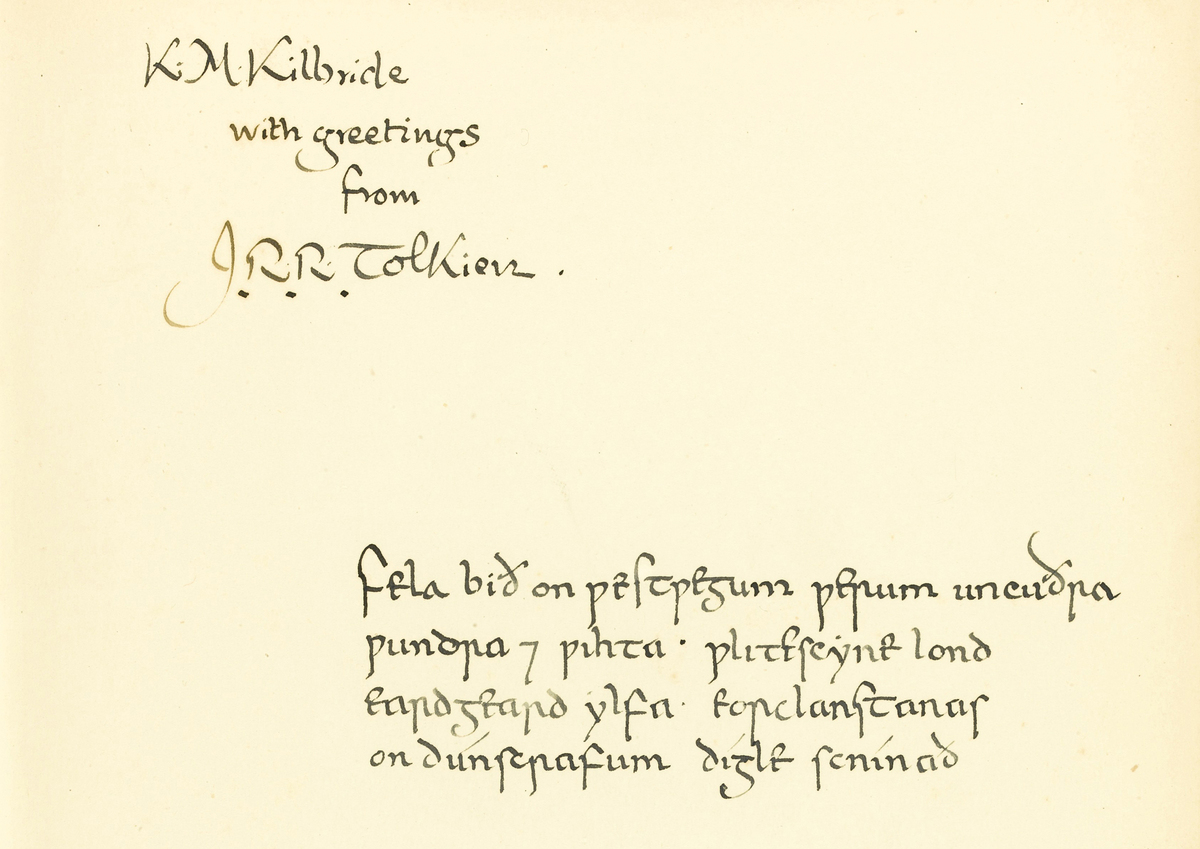 K.M.Kilbride
with greetings
from
J.R.R.Tolkien.
Fela bið on ƿestƿegum ƿerum uncuðra
ƿundra ⁊ ƿihta · ƿlitescýne lond
eardgeard ylfa · eorclanstanas
on dúnscrafum dígle